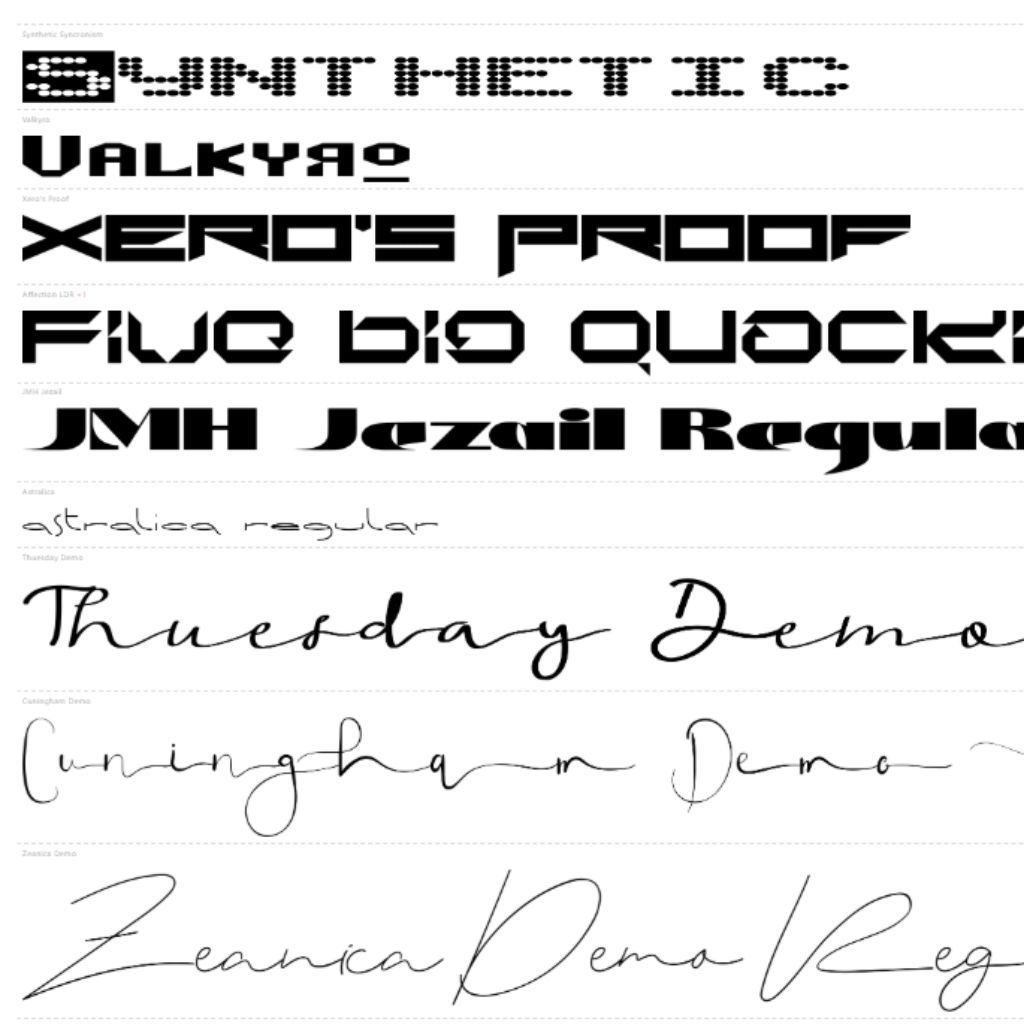 Synthetic Syncronism
SYNTHETIC
Valkyro
VALKYRO
Xero's Proof
XERO'S PROOF
Affection LDR +1
Five big quack
JMH Jezail
JMH Jezail Regula
Astralica
astralica regular
Thuesday Demo
Thuesday Demo
Cuningham Demo
Cuningham Demo
Zeanica Demo
Zeanica Demo Reg